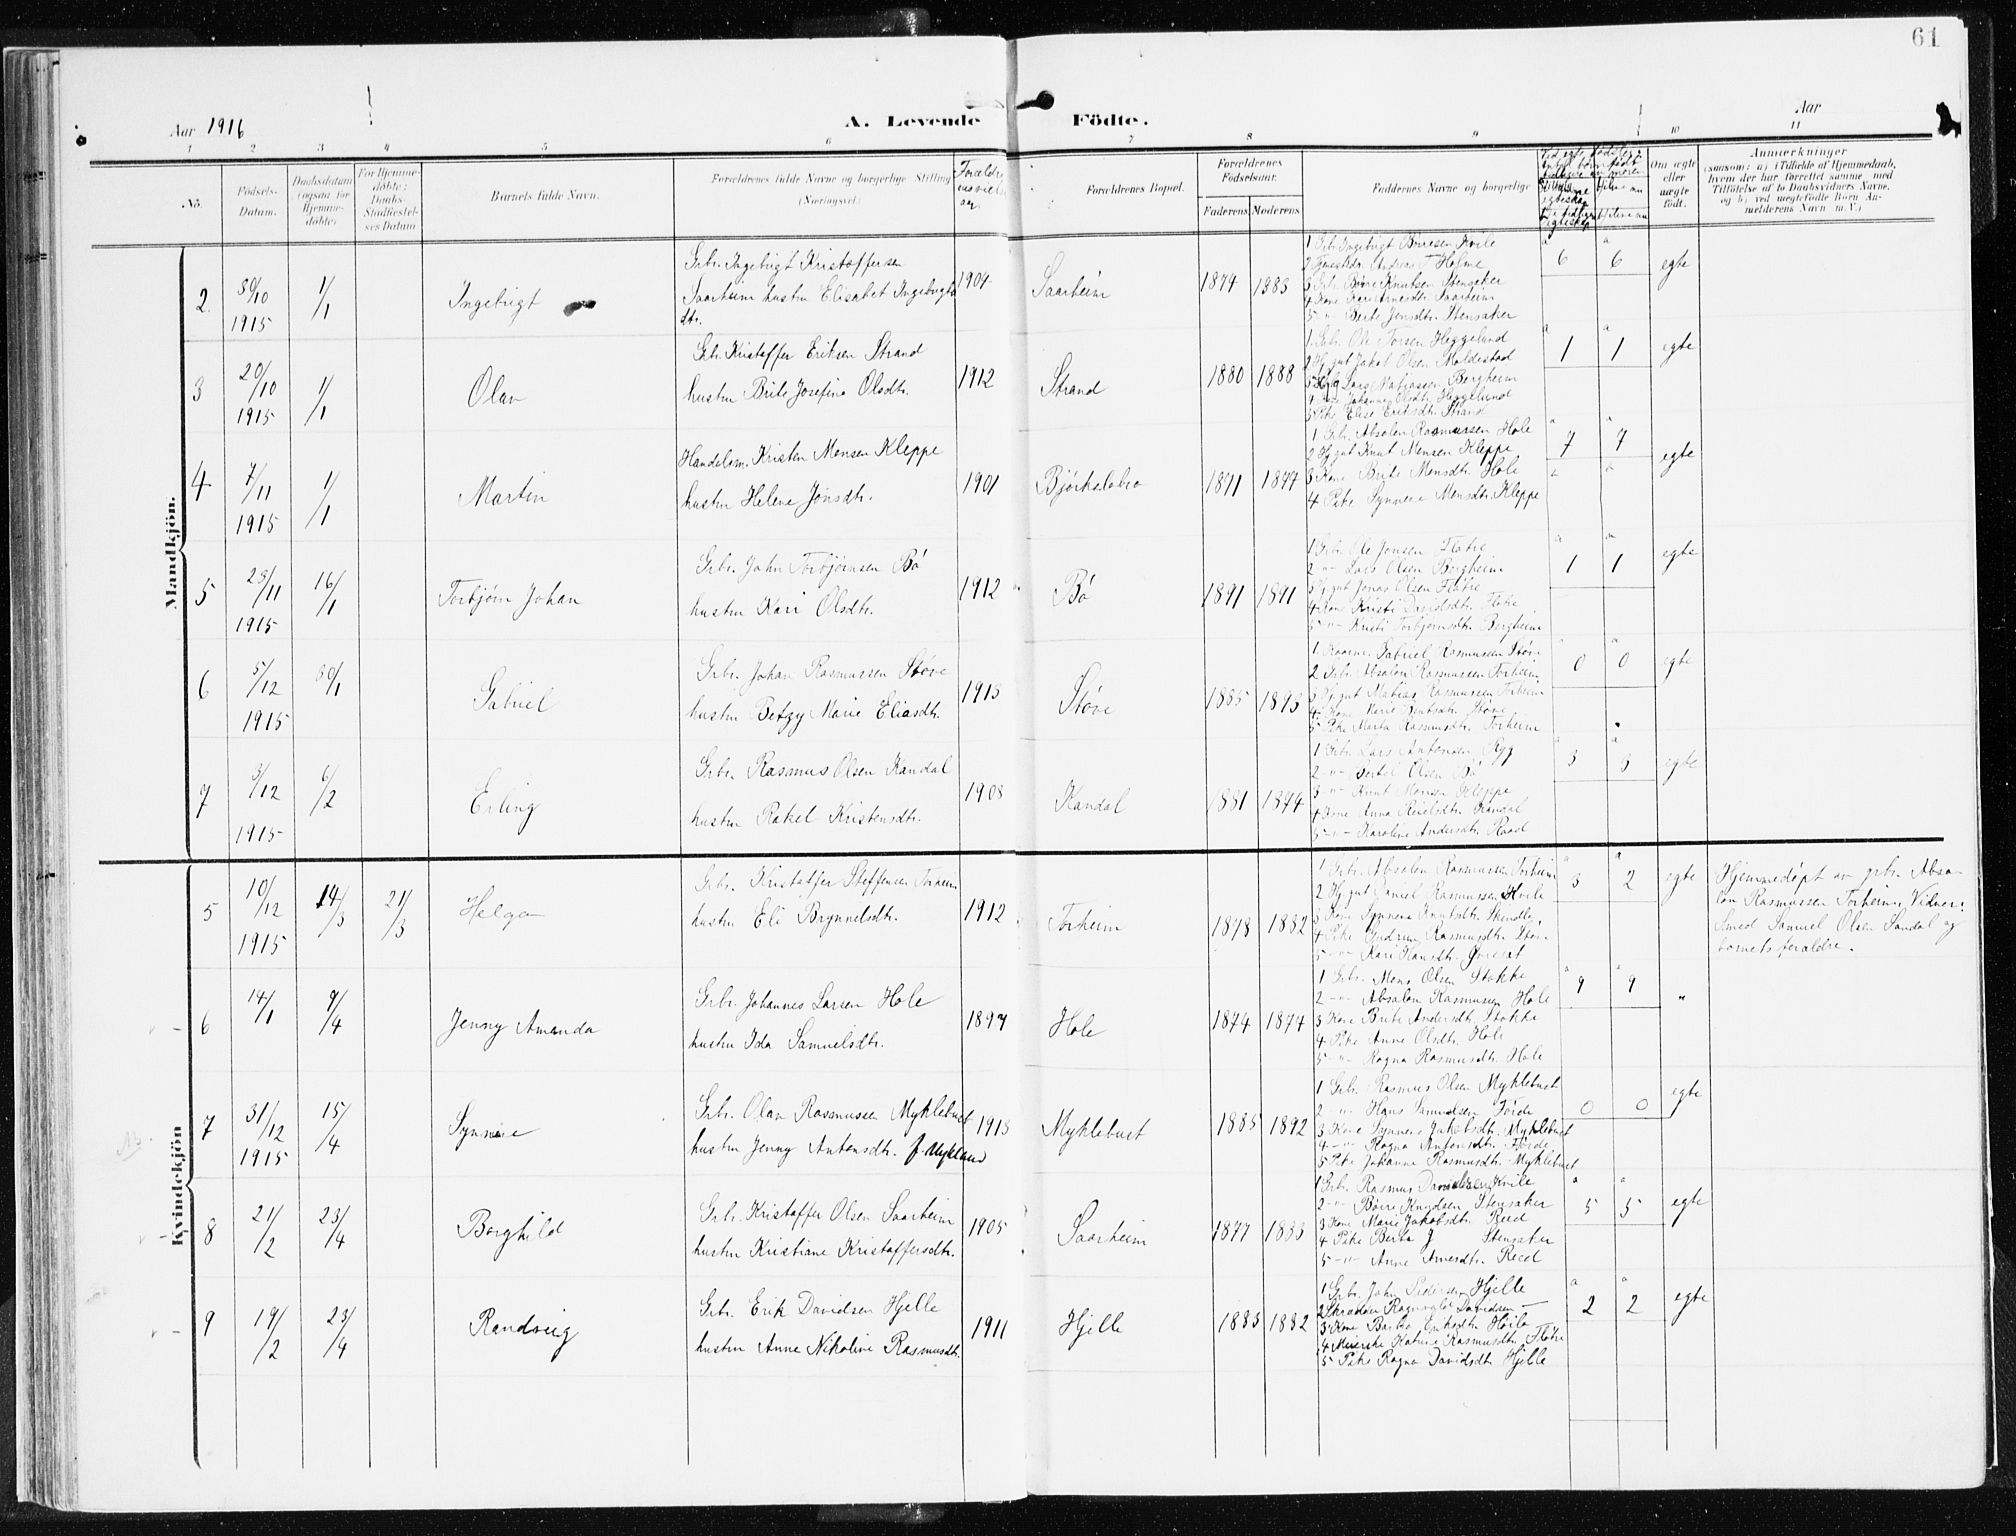 61
Aar 1916
A. Levende Födte.
Aar
1 2 3 4 5 6 7 8 9 10 11
No.
Födsels-Datum.
Daabsdatum (ogsaa for Hjemmedöbte)
For Hjemmedöbte: Daabs-Stadfæstelses Datum
Barnets fulde Navn.
Forældrenes fulde Navne og borgerlige Stilling (Næringsvei)
Forældrenes Bopæl.
Forældrenes Födselsaar.
Faderens. Moderens.
Faddernes Navne og borgerlige
Om ægte eller uægte födt.
Anmærkninger
(saasom: a) i Tilfælde af Hjemmedaab, hvem der har forrettet samme med Tilföielse af to Daabsvidners Navne, og b) ved uægtefödte Börn Anmelderens Navn m.V.)
Mandkjön.
2 30/10 1915 1/1 Ingebrigt
Grbr. Ingebrigt Kristoffersen
Saarheim hustru Elisabet Ingebrigts
dtr.
1904 Saarheim 1874 1883
1 Grbr. Ingebrigt Børresen Kvile
2 Tjenestdr. Andreas T Holme
3 Grbr. Børre Knutsen Stensaker
4 Kone Kari Arnesdtr. Saarheim
5 -"- Berte Jonsdtr. Stensaker
6 6 egte
3 20/10 1915 1/1 Olav
Grbr. Kristoffer Eriksen Strand
hustru Brite Josefine Olsdtr.
1912 Strand 1880 1888
1 Grbr. Ole Torsen Heggelund
2 Hj.gut Jakob Olsen Moldestad
3 Lars Matiassen Bergheim
4 Kone Johanne Olsdtr. Heggelund
5 Pike Elise Eriksdtr. Strand
1 1 egte
4 7/11 1915 1/1 Martin
Handelsm. Kristen Monsen Kleppe
hustru Helene Jonsdtr.
1901 Bjørkelobro 1871 1877
1 Grbr. Absolon Rasmussen Hole
2 Hj.gut Knut Monsen Kleppe
3 Kone Brite Monsdtr. Hole
4 Pike Synneve Monsdtr. Kleppe
7 7 egte
5 28/11 1915 16/1 Torbjørn Johan
Grbr. John Torbjørnsen Bø
hustru Kari Olsdtr.
1912 Bø 1891 1891
1 Grbr. Ole Jonsen Flotre
2 -"- Lars Olsen Bergheim
3 Hj.gut Jonas Olsen Flotre
4 Kone Kristi Davidsdtr. Flotre
5 -"- Kristi Torbjørnsdtr. Bergheim
1 1 egte
6 5/12 1915 30/1 Gabriel
Grbr. Johan Rasmussen Støve
hustru Betzy Marie Eliasdtr.
1913 Støve 1885 1893
1 Gabriel Rasmussen Støve
2 Grbr. Absolon Rasmussen Torheim
3 Hj.gut Matias Rasmussen Torheim
4 Kone Marie Knutsdtr. Støve
5 Pike Marta Rasmusdtr. Torheim
0 0 egte
7 3/12 1915 6/2 Erling
Grbr. Rasmus Olsen Kandal
hustru Rakel Kristensdtr.
1908 Kandal 1881 1874
1 Grbr. Lars Antonsen Ryg
2 -"- Bertel Olsen Bø
3 -"- Knut Monsen Kleppe
4 Kone Anna Reielsdtr. Kandal
5 -"- Karoline Andersdtr. Raad
3 3 egte
Kvindekjön
5 10/12 1915 14/3 21/3 Helga
Grbr. Kristoffer Steffensen Torheim
hustru Eli Brynnelsdtr.
1912 Torheim 1878 1882
1 Grbr. Absolon Rasmussen Torheim
2 Hj.gut Daniel Rasmussen Kvile
3 Kone Synneva Knutsdtr.
4 Pike Gudrun Rasmusdtr. Støve
5 -"- Kari Hansdtr.
3 2 egte
Hjemmedøpt av grbr. Abso-
lon Rasmussen Torheim. Vidner:
Smed Samuel Olsen Sandal og
barnets forældre.
6 14/1 9/4 Jenny Amanda
Grbr. Johannes Larsen Hole
hustru Ida Samuelsdtr.
1897 Hole 1874 1874
1 Grbr. Mons Olsen Stokke
2 -"- Absolon Rasmussen Hole
3 Kone Brite Andersdtr. Stokke
4 Pike Anne Olsdtr. Hole
5 -"- Ragna Rasmusdtr. Hole
9 9 "
7 31/12 1915 15/4 Synneve
Grbr. Olav Rasmussen Myklebust
hustru Jenny Antonsdtr. f. Mykland
1913 Myklebust 1885 1892
1 Grbr. Rasmus Olsen Myklebust
2 -"- Hans Samuelsen Førde
3 Kone Synneve Jakobsdtr. Myklebust
4 -"- Ragna Antonsdtr. Førde
5 Pike Johanne Rasmusdtr. Myklebust
0 0 egte
8 21/2 23/4 Borghild
Grbr. Kristoffer Olsen Saarheim
hustru Kristiane Kristoffersdtr.
1905 Saarheim 1877 1883
1 Grbr. Rasmus Danielsen Kvile
2 -"- Børre Knudsen Stensaker
3 Kone Marie Jakobsdtr. Reed
4 Pike Berta J Stensaker
5 -"- Anne Arnesdtr. Reed
5 5 egte
9 19/2 23/4 Randveig
Grbr. Erik Davidsen Hjelle
hustru Anne Nikoline Rasmusdtr.
1911 Hjelle 1883 1882
1 Grbr. John Pedersen Hjelle
2 Skrædder Ragnvald Davidsen —
3 Kone Barbro Eriksdtr.
4 Meierske Katrine Rasmusdtr. Flotre
5 Pike Ragna Davidsdtr. Hjelle
2 2 egte